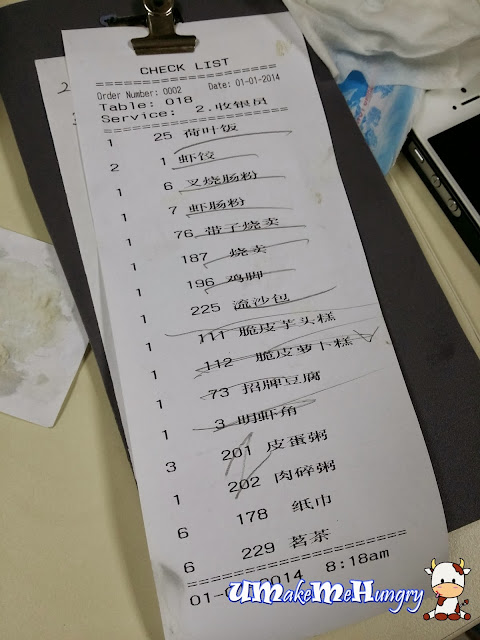 CHECK LIST
Order Number: 0002 Date: 01-01-2014
Table: 018
Service: 2.收银员
1 25 荷叶饭
2 1 虾饺
1 6 叉烧肠粉
1 7 虾肠粉
1 76 带子烧卖
1 187 烧卖
1 196 鸡脚
1 225 流沙包
1 111 脆皮芋头糕
1 112 脆皮萝卜糕
1 73 招牌豆腐
1 3 明虾角
3 201 皮蛋粥
1 202 肉碎粥
6 178 纸巾
6 229 茗茶
01-0 2014 8:18am
UMakeMeHungry